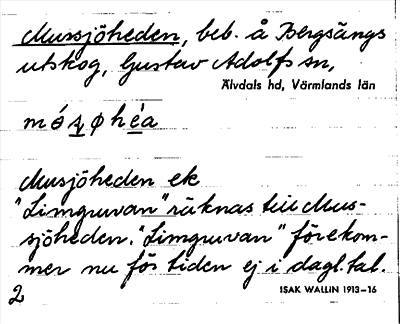 Mussjöheden, beb. å Bergsängs
utskog, Gustav Adolfs sn,
Älvdals hd, Värmlands län
Musjöheden ek
"Limgruvan" räknas till Mus-
sjöheden. "Limgruvan" förekom-
mer nu för tiden ej i dagl. tal.
2
ISAK WALLIN 1913–16